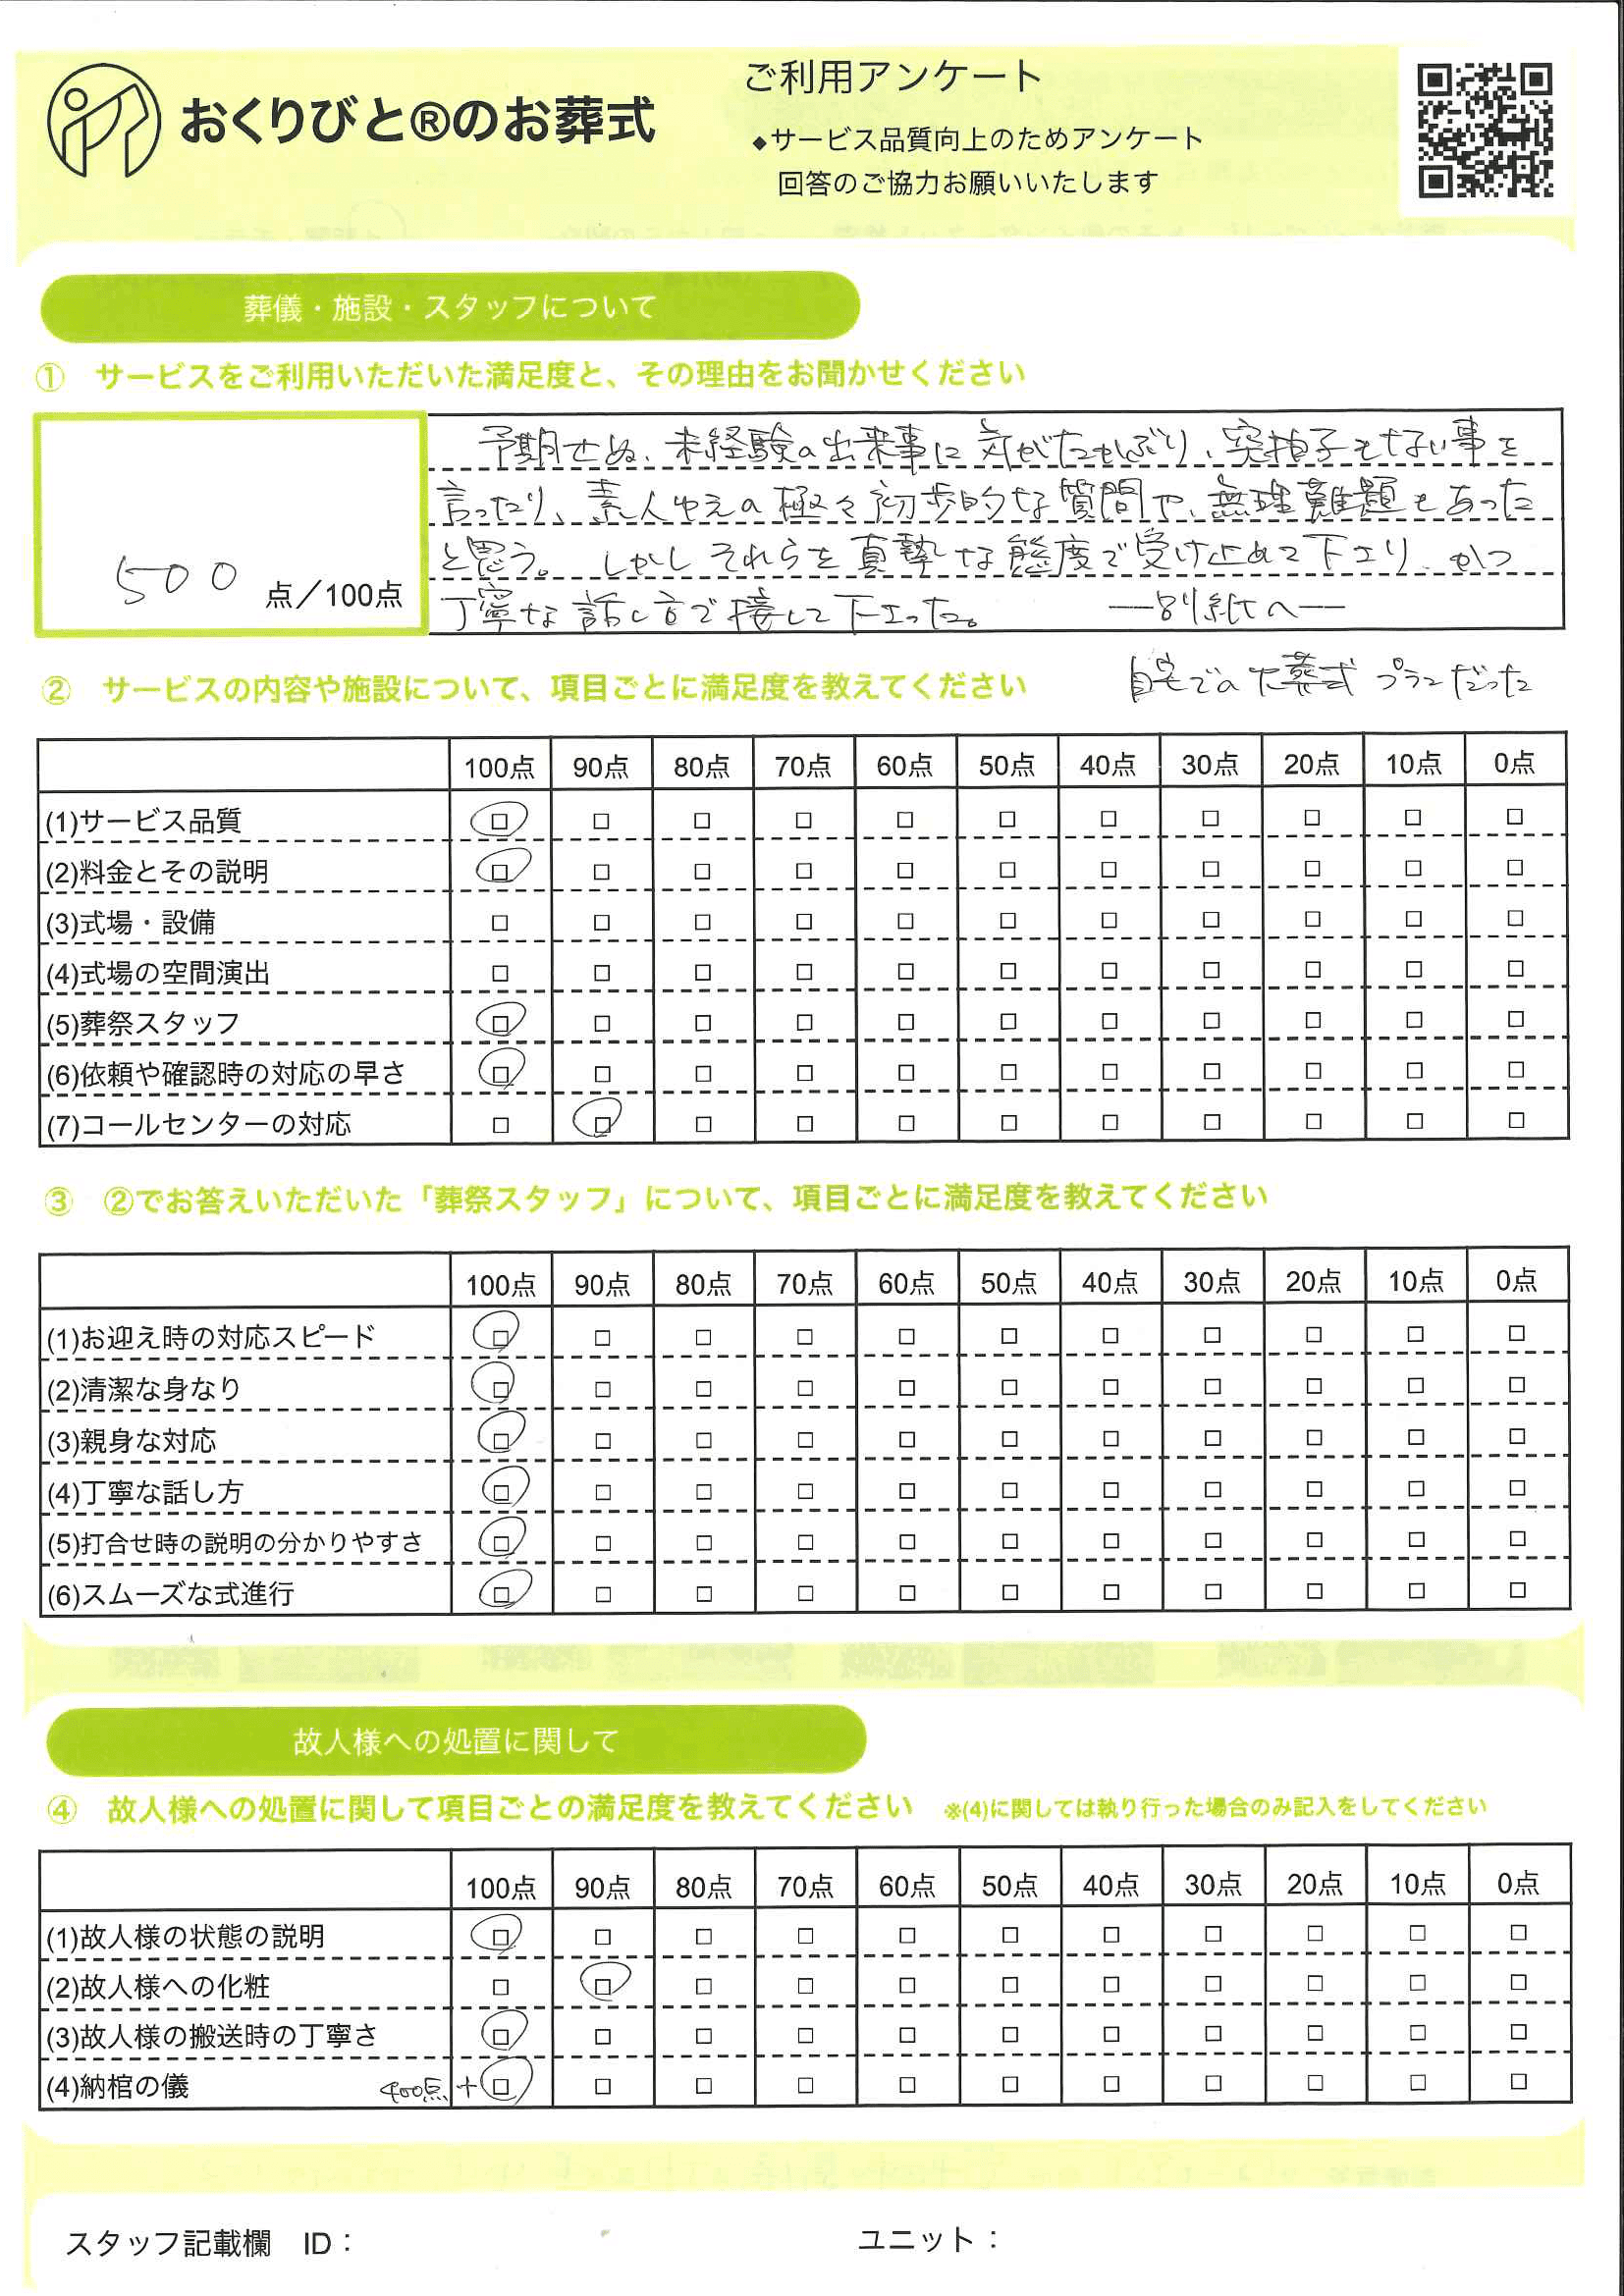 おくりびと®のお葬式
ご利用アンケート
◆サービス品質向上のためアンケート
回答のご協力お願いいたします
葬儀・施設・スタッフについて
① サービスをご利用いただいた満足度と、その理由をお聞かせください
500 点／100点
予期せぬ、未経験の出来事に気がたかぶり、突拍子もない事を
言ったり、素人ゆえの極々初歩的な質問や、無理難題もあった
と思う。しかしそれらを真摯な態度で受け止めて下さり、かつ
丁寧な話し方で接して下さった。 ―別紙へ―
② サービスの内容や施設について、項目ごとに満足度を教えてください
自宅でのお葬式プランだった
100点 90点 80点 70点 60点 50点 40点 30点 20点 10点 0点
(1)サービス品質
(2)料金とその説明
(3)式場・設備
(4)式場の空間演出
(5)葬祭スタッフ
(6)依頼や確認時の対応の早さ
(7)コールセンターの対応
③ ②でお答えいただいた「葬祭スタッフ」について、項目ごとに満足度を教えてください
100点 90点 80点 70点 60点 50点 40点 30点 20点 10点 0点
(1)お迎え時の対応スピード
(2)清潔な身なり
(3)親身な対応
(4)丁寧な話し方
(5)打合せ時の説明の分かりやすさ
(6)スムーズな式進行
故人様への処置に関して
④ 故人様への処置に関して項目ごとの満足度を教えてください ※(4)に関しては執り行った場合のみ記入をしてください
100点 90点 80点 70点 60点 50点 40点 30点 20点 10点 0点
(1)故人様の状態の説明
(2)故人様への化粧
(3)故人様の搬送時の丁寧さ
(4)納棺の儀 400点 +
スタッフ記載欄 ID： ユニット：